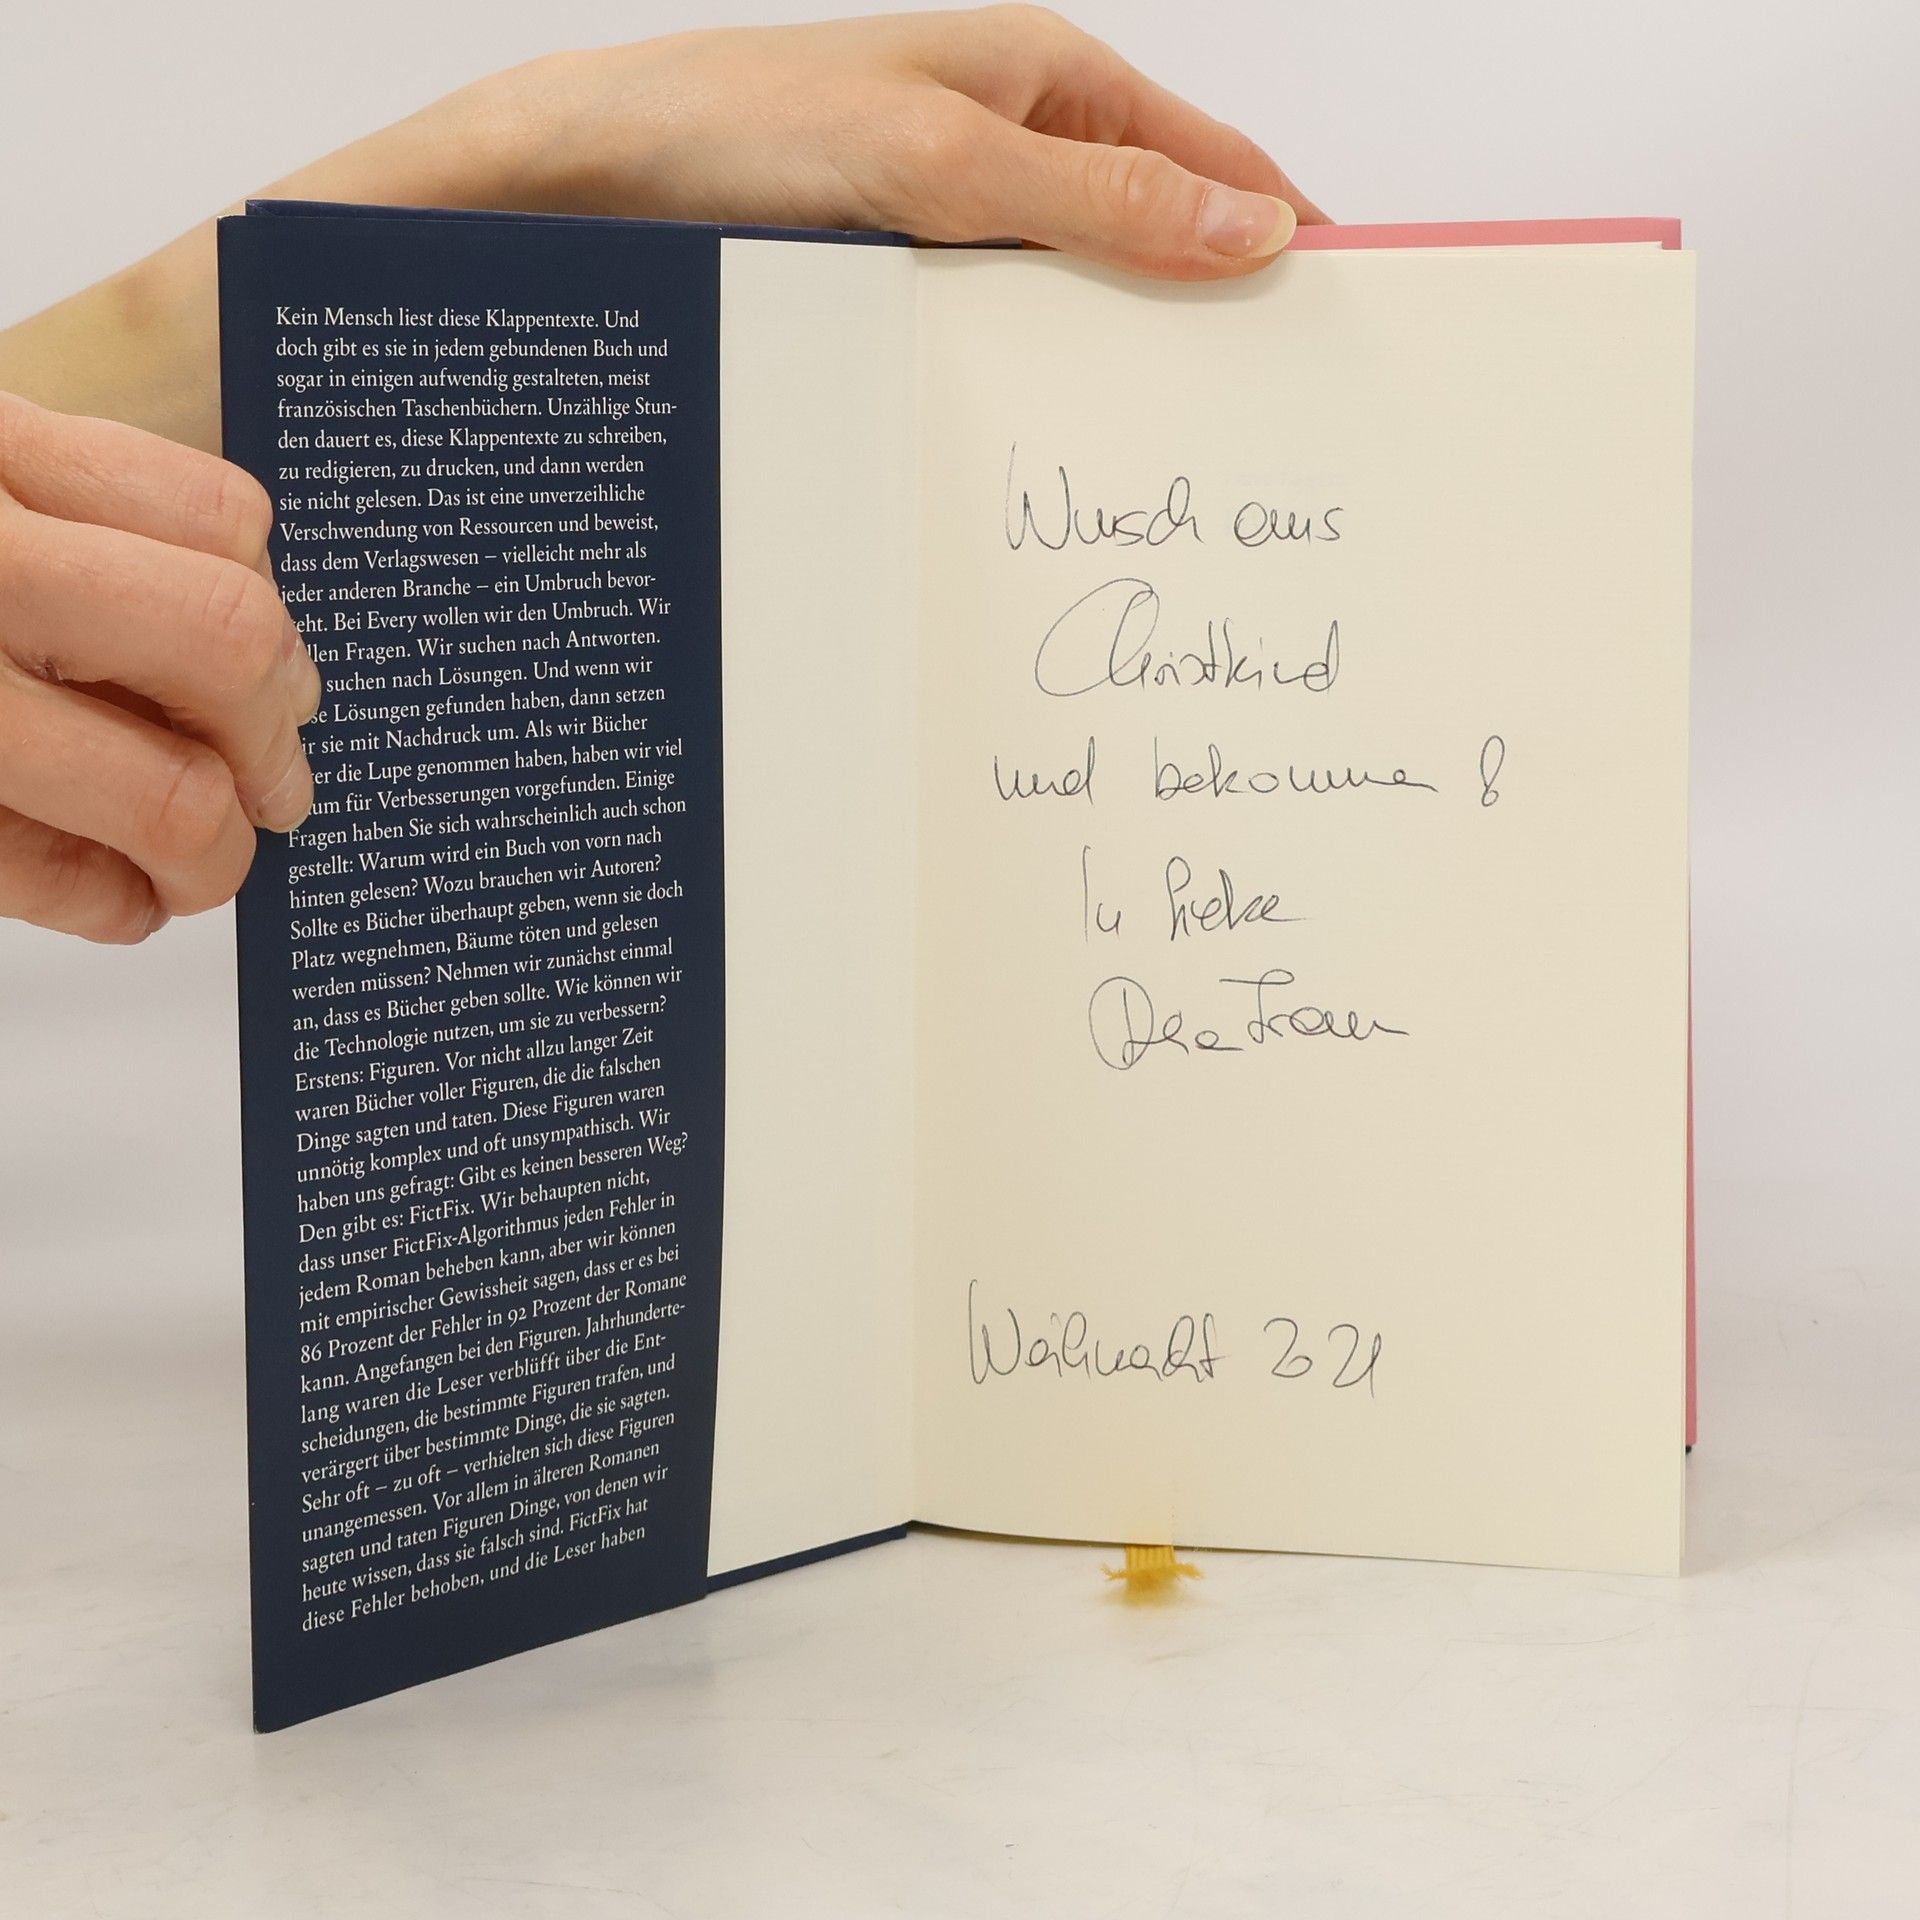 Kein Mensch liest diese Klappentexte. Und
doch gibt es sie in jedem gebundenen Buch und
sogar in einigen aufwendig gestalteten, meist
französischen Taschenbüchern. Unzählige Stun-
den dauert es, diese Klappentexte zu schreiben,
zu redigieren, zu drucken, und dann werden
sie nicht gelesen. Das ist eine unverzeihliche
Verschwendung von Ressourcen und beweist,
dass dem Verlagswesen – vielleicht mehr als
jeder anderen Branche – ein Umbruch bevor-
eht. Bei Every wollen wir den Umbruch. Wir
llen Fragen. Wir suchen nach Antworten.
suchen nach Lösungen. Und wenn wir
se Lösungen gefunden haben, dann setzen
ir sie mit Nachdruck um. Als wir Bücher
er die Lupe genommen haben, haben wir viel
um für Verbesserungen vorgefunden. Einige
Fragen haben Sie sich wahrscheinlich auch schon
gestellt: Warum wird ein Buch von vorn nach
hinten gelesen? Wozu brauchen wir Autoren?
Sollte es Bücher überhaupt geben, wenn sie doch
Platz wegnehmen, Bäume töten und gelesen
werden müssen? Nehmen wir zunächst einmal
an, dass es Bücher geben sollte. Wie können wir
die Technologie nutzen, um sie zu verbessern?
Erstens: Figuren. Vor nicht allzu langer Zeit
waren Bücher voller Figuren, die die falschen
Dinge sagten und taten. Diese Figuren waren
unnötig komplex und oft unsympathisch. Wir
haben uns gefragt: Gibt es keinen besseren Weg?
Den gibt es: FictFix. Wir behaupten nicht,
dass unser FictFix-Algorithmus jeden Fehler in
jedem Roman beheben kann, aber wir können
mit empirischer Gewissheit sagen, dass er es bei
86 Prozent der Fehler in 92 Prozent der Romane
kann. Angefangen bei den Figuren. Jahrhunderte-
lang waren die Leser verblüfft über die Ent-
scheidungen, die bestimmte Figuren trafen, und
verärgert über bestimmte Dinge, die sie sagten.
Sehr oft – zu oft – verhielten sich diese Figuren
unangemessen. Vor allem in älteren Romanen
sagten und taten Figuren Dinge, von denen wir
heute wissen, dass sie falsch sind. FictFix hat
diese Fehler behoben, und die Leser haben
Wunsch ans
Christkind
und bekommen!
In Liebe
Frau
Weihnacht 2021